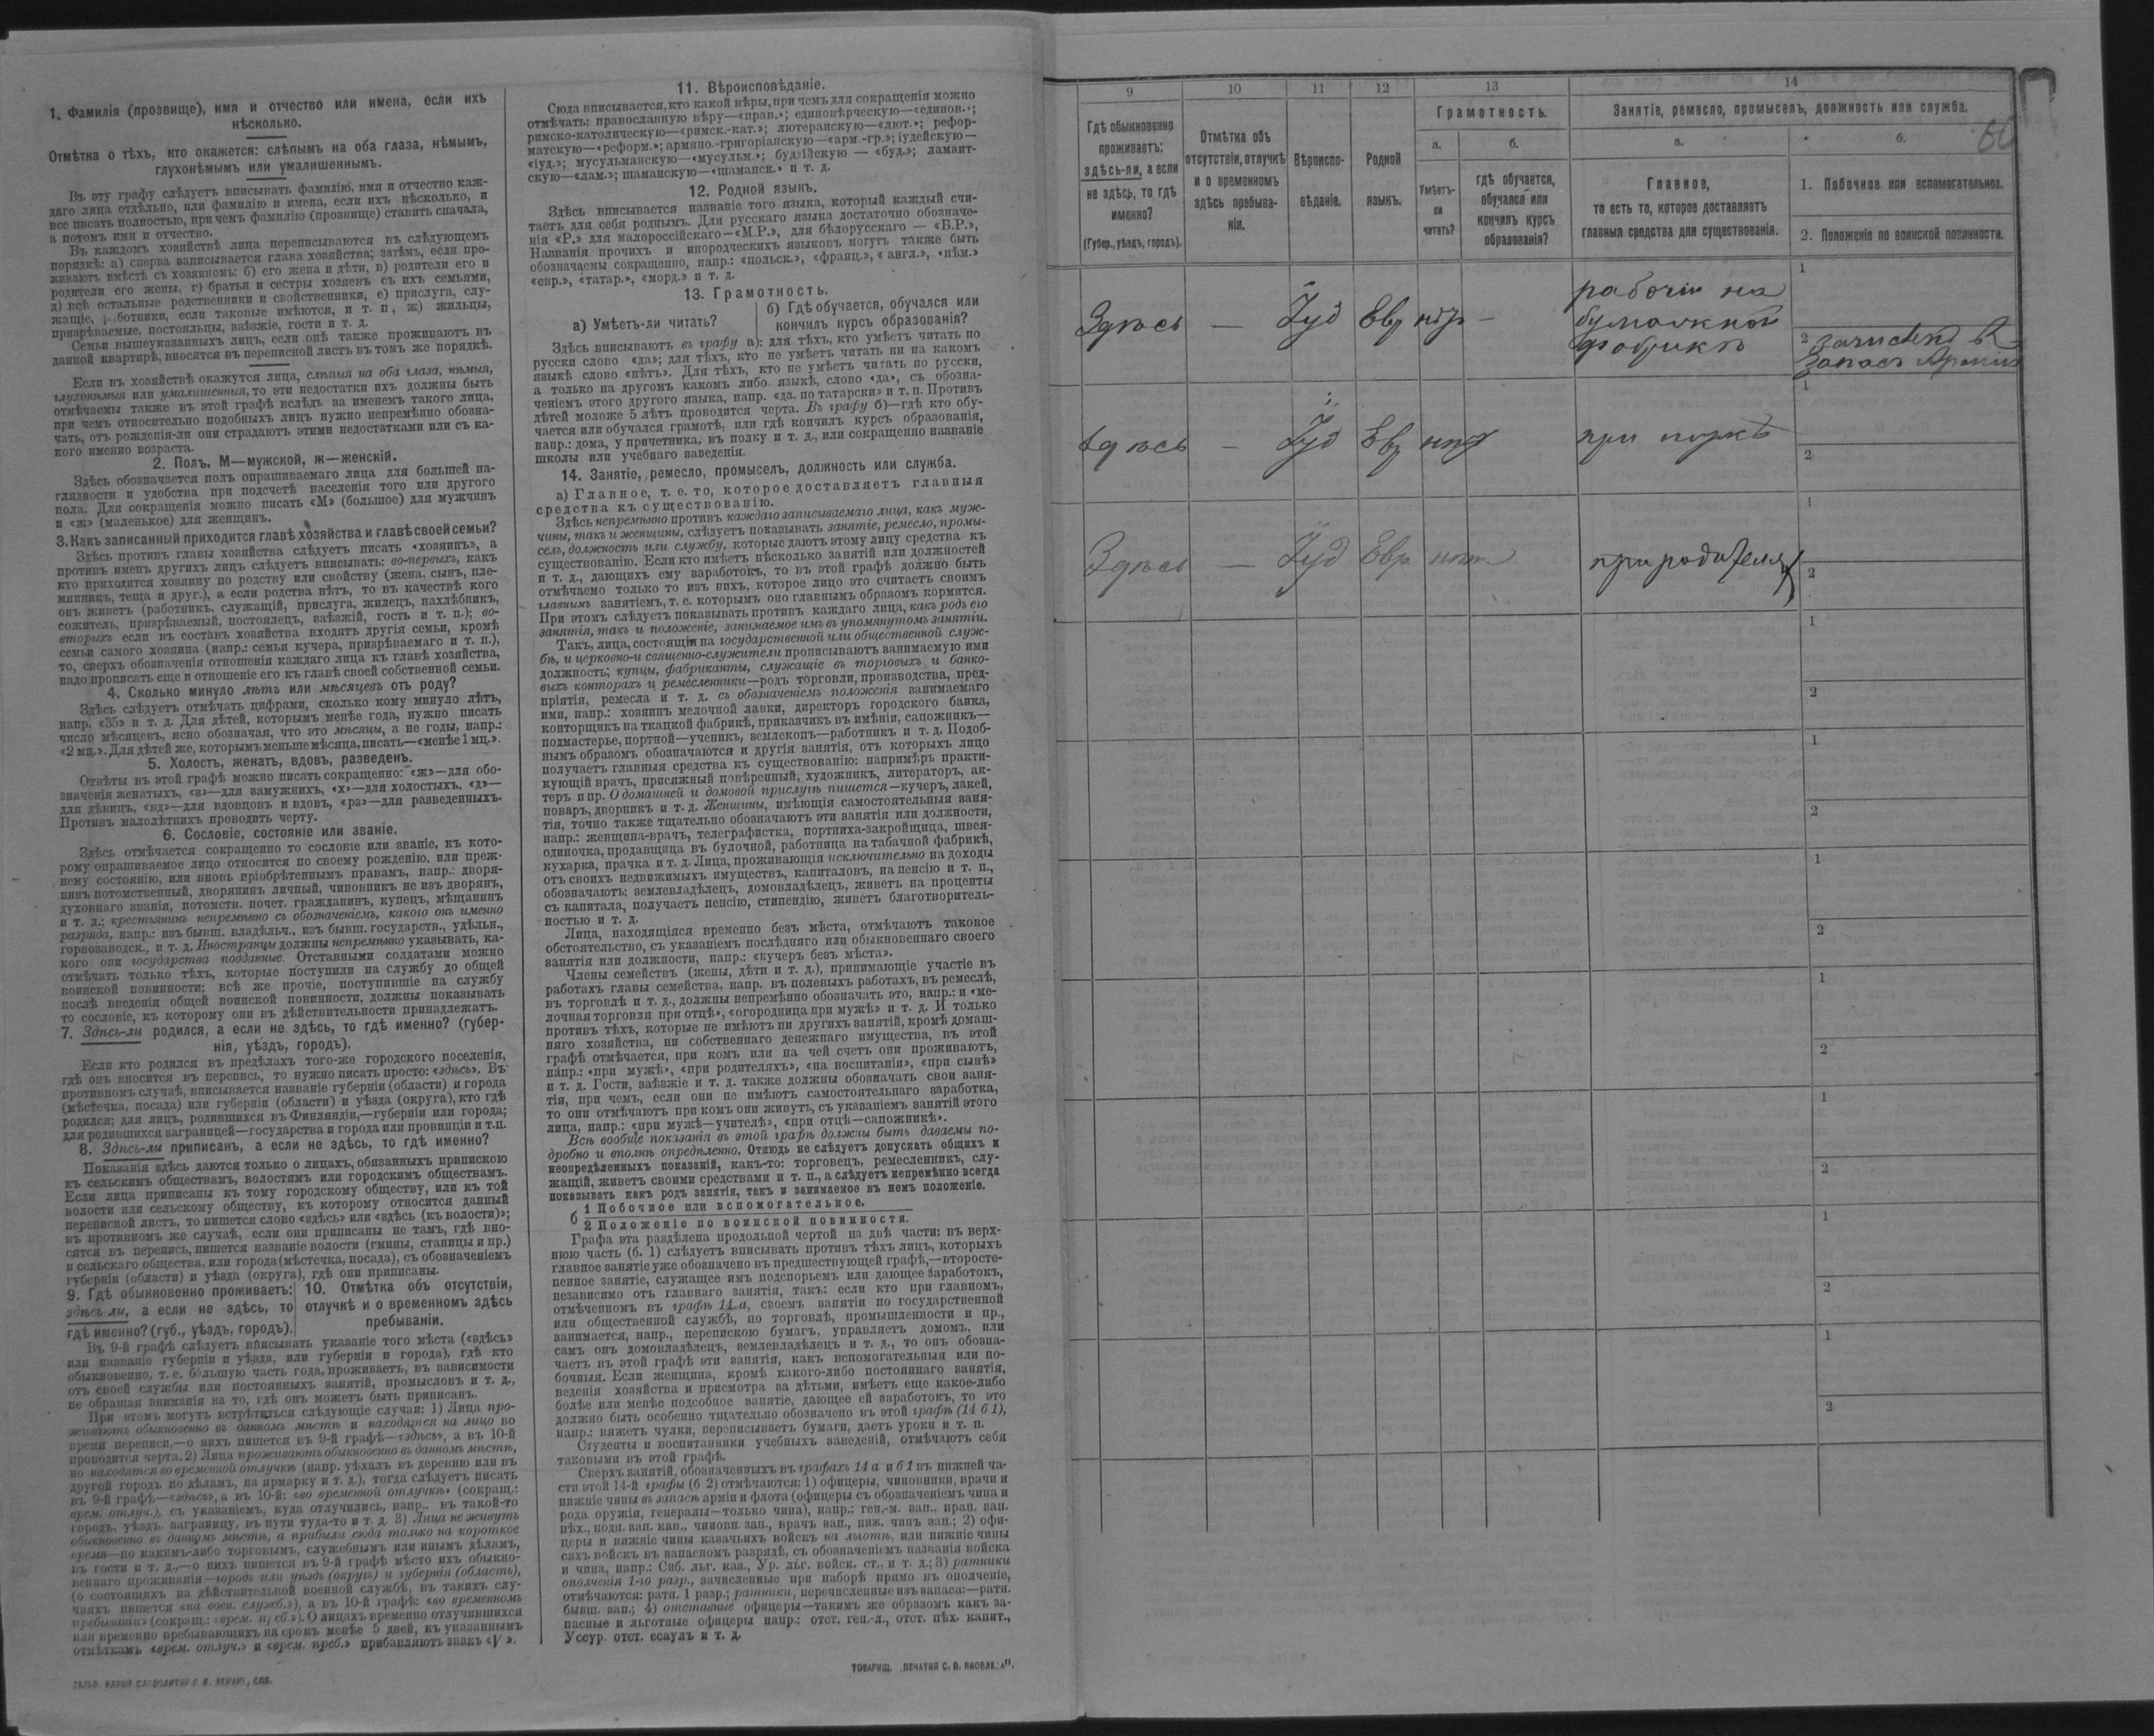 1. Фамилія (прозвище), имя и отчество или имена, если ихъ
нѣсколько.
Отмѣтка о тѣхъ, кто окажется: слѣпымъ на оба глаза, нѣмымъ,
глухонѣмымъ или умалишеннымъ.
Въ эту графу слѣдуетъ вписывать фамилію, имя и отчество каж-
даго лица отдѣльно, или фамилію и имена, если ихъ нѣсколько, и
все писать полностью, при чемъ фамилію (прозвище) ставить сначала,
а потомъ имя и отчество.
Въ каждомъ хозяйствѣ лица переписываются въ слѣдующемъ
порядкѣ: а) сперва записывается глава хозяйства; затѣмъ, если про-
живаютъ вмѣстѣ съ хозяиномъ: б) его жена и дѣти, в) родители его и
родители его жены, г) братья и сестры хозяевъ съ ихъ семьями,
д) всѣ остальные родственники и свойственники, е) прислуга, слу-
жащіе, работники, если таковые имѣются, и т. п, ж) жильцы,
призрѣваемые, постояльцы, заѣзжіе, гости и т. д.
Семьи вышеуказанныхъ лицъ, если онѣ также проживаютъ въ
данной квартирѣ, вносятся въ переписной листъ въ томъ же порядкѣ.
Если въ хозяйствѣ окажутся лица, слѣпыя на оба глаза, нѣмыя,
глухонѣмыя или умалишенныя, то эти недостатки ихъ должны быть
отмѣчаемы также въ этой графѣ вслѣдъ за именемъ такого лица,
при чемъ относительно подобныхъ лицъ нужно непремѣнно обозна-
чать, отъ рожденія-ли они страдаютъ этими недостатками или съ ка-
кого именно возраста.
2. Полъ, М—мужской, ж—женскій.
Здѣсь обозначается полъ опрашиваемаго лица для большей на-
глядности и удобства при подсчетѣ населенія того или другого
пола. Для сокращенія можно писать «М» (большое) для мужчинъ
и «ж» (маленькое) для женщинъ.
3. Какъ записанный приходится главѣ хозяйства и главѣ своей семьи?
Здѣсь противъ главы хозяйства слѣдуетъ писать «хозяинъ», а
противъ именъ другихъ лицъ слѣдуетъ вписывать: во-первыхъ, какъ
кто приходится хозяину по родству или свойству (жена, сынъ, пле-
мянникъ, теща и друг.), а если родства нѣтъ, то въ качествѣ кого
онъ живетъ (работникъ, служащій, прислуга, жилецъ, нахлѣбникъ,
сожитель, призрѣваемый, постоялецъ, заѣзжій, гость и т. п.); во-
вторыхъ если въ составъ хозяйства входятъ другія семьи, кромѣ
семьи самого хозяина (напр.: семья кучера, призрѣваемаго и т. п.),
то, сверхъ обозначенія отношенія каждаго лица къ главѣ хозяйства,
надо прописать еще и отношеніе его къ главѣ своей собственной семьи.
4. Сколько минуло лѣтъ или мѣсяцевъ отъ роду?
Здѣсь слѣдуетъ отмѣчать цифрами, сколько кому минуло лѣтъ,
напр. «35» и т. д. Для дѣтей, которымъ менѣе года, нужно писать
число мѣсяцевъ, ясно обозначая, что это мѣсяцы, а не годы, напр.:
«2 мц.». Для дѣтей же, которымъ меньше мѣсяца, писать—«менѣе 1 мц.».
5. Холостъ, женатъ, вдовъ, разведенъ.
Отвѣты въ этой графѣ можно писать сокращенно: «ж»—для обо-
значенія женатыхъ, «з»—для замужнихъ, «х»—для холостыхъ, «д»—
для дѣвицъ, «вд»—для вдовцовъ и вдовъ, «рз»—для разведенныхъ.
Противъ малолѣтнихъ проводить черту.
6. Сословіе, состояніе или званіе.
Здѣсь отмѣчается сокращенно то сословіе или званіе, къ кото-
рому опрашиваемое лицо относится по своему рожденію, или преж-
нему состоянію, или вновь пріобрѣтеннымъ правамъ, напр.: дворя-
нинъ потомственный, дворянинъ личный, чиновникъ не изъ дворянъ,
духовнаго званія, потомств. почет. гражданинъ, купецъ, мѣщанинъ
и т. д.; крестьянинъ непремѣнно съ обозначеніемъ, какого онъ именно
разряда, напр.: изъ бывш. владѣльч., изъ бывш. государств., удѣльн.,
горнозаводск., и т. д. Иностранцы должны непремѣнно указывать, ка-
кого они государства подданные. Отставными солдатами можно
отмѣчать только тѣхъ, которые поступили на службу до общей
воинской повинности; всѣ же прочіе, поступившіе на службу
послѣ введенія общей воинской повинности, должны показывать
то сословіе, къ которому они въ дѣйствительности принадлежатъ.
7. Здѣсь-ли родился, а если не здѣсь, то гдѣ именно? (губер-
нія, уѣздъ, городъ).
Если кто родился въ предѣлахъ того-же городского поселенія,
гдѣ онъ вносится въ перепись, то нужно писать просто: «здѣсь». Въ
противномъ случаѣ, вписывается названіе губерніи (области) и города
(мѣстечка, посада) или губерніи (области) и уѣзда (округа), кто гдѣ
родился; для лицъ, родившихся въ Финляндіи,—губерніи или города;
для родившихся заграницей—государства и города или провинціи и т.п.
8. Здѣсь-ли приписанъ, а если не здѣсь, то гдѣ именно?
Показанія здѣсь даются только о лицахъ, обязанныхъ припискою
къ сельскимъ обществамъ, волостямъ или городскимъ обществамъ.
Если лица приписаны къ тому городскому обществу, или къ той
волости или сельскому обществу, къ которому относится данный
переписной листъ, то пишется слово «здѣсь» или «здѣсь (къ волости)»;
въ противномъ же случаѣ, если они приписаны не тамъ, гдѣ вно-
сятся въ перепись, пишется названіе волости (гмины, станицы и пр.)
и сельскаго общества, или города (мѣстечка, посада), съ обозначеніемъ
губерніи (области) и уѣзда (округа), гдѣ они приписаны.
9. Гдѣ обыкновенно проживаетъ:
здѣсь-ли, а если не здѣсь, то
гдѣ именно? (губ., уѣздъ, городъ).
10. Отмѣтка объ отсутствіи,
отлучкѣ и о временномъ здѣсь
пребываніи.
Въ 9-й графѣ слѣдуетъ вписывать указаніе того мѣста («здѣсь»
или названіе губерніи и уѣзда, или губерніи и города), гдѣ кто
обыкновенно, т. е. большую часть года, проживаетъ, въ зависимости
отъ своей службы или постоянныхъ занятій, промысловъ и т. д.,
не обращая вниманія на то, гдѣ онъ можетъ быть приписанъ.
При этомъ могутъ встрѣтиться слѣдующіе случаи: 1) Лица про-
живаютъ обыкновенно въ данномъ мѣстѣ и находятся на лицо во
время переписи,—о нихъ пишется въ 9-й графѣ—«здѣсь», а въ 10-й
проводится черта. 2) Лица проживаютъ обыкновенно въ данномъ мѣстѣ,
но находятся во временной отлучкѣ (напр. уѣхалъ въ деревню или въ
другой городъ по дѣламъ, на ярмарку и т. д.), тогда слѣдуетъ писать
въ 9-й графѣ—«здѣсь», а въ 10-й: «во временной отлучкѣ» (сокращ.:
врем. отлуч.), съ указаніемъ, куда отлучились, напр.. въ такой-то
городъ, уѣздъ. заграницу, въ пути туда-то и т. д. 3) Лица не живутъ
обыкновенно въ данномъ мѣстѣ, а прибыли сюда только на короткое
время—по какимъ-либо торговымъ, служебнымъ или инымъ дѣламъ,
въ гости и т. д.,—о нихъ пишется въ 9-й графѣ мѣсто ихъ обыкно-
веннаго проживанія—городъ или уѣздъ (округъ) и губернія (область),
(о состоящихъ на дѣйствительной военной службѣ, въ такихъ слу-
чаяхъ пишется «на воен. служб.»), а въ 10-й графѣ: «во временномъ
пребываніи» (сокращ.: «врем. преб.»). О лицахъ временно отлучившихся
или временно пребывающихъ на срокъ менѣе 5 дней, къ указаннымъ
отмѣткамъ «врем. отлуч.» и «врем. преб.» прибавляютъ знакъ «V».
11. Вѣроисповѣданіе.
Сюда вписывается, кто какой вѣры, при чемъ для сокращенія можно
отмѣчать: православную вѣру—«прав.»; единовѣрческую—«единов.»;
римско-католическую—«римск.-кат.»; лютеранскую—«лют.»; рефор-
матскую—«реформ.»; армяно-григоріанскую—«арм.-гр.»; іудейскую—
«іуд.»; мусульманскую—«мусульм.»; буддійскую — «буд.»; ламаит-
скую—«лам.»; шаманскую—«шаманск.» и т. д.
12. Родной языкъ.
Здѣсь вписывается названіе того языка, который каждый счи-
таетъ для себя роднымъ. Для русскаго языка достаточно обозначе-
нія «Р.» для малороссійскаго—«М Р.», для бѣлорусскаго — «Б.Р.»,
Названія прочихъ и инородческихъ языковъ могутъ также быть
обозначаемы сокращенно, напр.: «польск.», «франц.», « англ.», «нѣм.»
«евр.», «татар.», «морд.» и т. д.
13. Грамотность.
а) Умѣетъ-ли читать?
б) Гдѣ обучается, обучался или
кончилъ курсъ образованія?
Здѣсь вписываютъ въ графу а): для тѣхъ, кто умѣетъ читать по
русски слово «да»; для тѣхъ, кто не умѣетъ читать ни на какомъ
языкѣ слово «нѣтъ». Для тѣхъ, кто не умѣетъ читать по русски,
а только на другомъ какомъ либо языкѣ, слово «да», съ обозна-
ченіемъ этого другого языка, напр. «да, по татарски» и т. п. Противъ
дѣтей моложе 5 лѣтъ проводится черта. Въ графу б)—гдѣ кто обу-
чается или обучался грамотѣ, или гдѣ кончилъ курсъ образованія,
напр.: дома, у причетника, въ полку и т. д., или сокращенно названіе
школы или учебнаго заведенія.
14. Занятіе, ремесло, промыселъ, должность или служба.
а) Главное, т. е. то, которое доставляетъ главныя
средства къ существованію.
Здѣсь непремѣнно противъ каждаго записываемаго лица, какъ муж-
чины, такъ и женщины, слѣдуетъ показывать занятіе, ремесло, промы-
селъ, должность или службу, которые даютъ этому лицу средства къ
существованію. Если кто имѣетъ нѣсколько занятій или должностей
и т. д., дающихъ ему заработокъ, то въ этой графѣ должно быть
отмѣчаемо только то изъ нихъ, которое лицо это считаетъ своимъ
главнымъ занятіемъ, т. е. которымъ оно главнымъ образомъ кормится.
При этомъ слѣдуетъ показывать противъ каждаго лица, какъ родъ его
занятія, такъ и положеніе, занимаемое имъ въ упомянутомъ занятіи.
Такъ, лица, состоящія на государственной или общественной служ-
бѣ, и церковно-и священно-служители прописываютъ занимаемую ими
должность; купцы, фабриканты, служащіе въ торговыхъ и банко-
выхъ конторахъ и ремесленники—родъ торговли, производства, пред-
пріятія, ремесла и т. д. съ обозначеніемъ положенія занимаемаго
ими, напр.: хозяинъ мелочной лавки, директоръ городского банка,
конторщикъ на ткацкой фабрикѣ, приказчикъ въ имѣніи, сапожникъ—
подмастерье, портной—ученикъ, землекопъ—работникъ и т. д. Подоб-
нымъ образомъ обозначаются и другія занятія, отъ которыхъ лицо
получаетъ главныя средства къ существованію: напримѣръ практи-
кующій врачъ, присяжный повѣренный, художникъ, литераторъ, ак-
теръ и пр. О домашней и домовой прислугѣ пишется—кучеръ, лакей,
поваръ, дворникъ и т. д. Женщины, имѣющія самостоятельныя заня-
тія, точно также тщательно обозначаютъ эти занятія или должности,
напр.: женщина-врачъ, телеграфистка, портниха-закройщица, швея-
одиночка, продавщица въ булочной, работница на табачной фабрикѣ,
кухарка, прачка и т. д. Лица, проживающія исключительно на доходы
отъ своихъ недвижимыхъ имуществъ, капиталовъ, на пенсію и т. п.,
обозначаютъ: землевладѣлецъ, домовладѣлецъ, живетъ на проценты
съ капитала, получаетъ пенсію, стипендію, живетъ благотворитель-
ностью и т. д.
Лица, находящіяся временно безъ мѣста, отмѣчаютъ таковое
обстоятельство, съ указаніемъ послѣдняго или обыкновеннаго своего
занятія или должности, напр.: «кучеръ безъ мѣста».
Члены семействъ (жены, дѣти и т. д.), принимающіе участіе въ
работахъ главы семейства, напр. въ полевыхъ работахъ, въ ремеслѣ,
въ торговлѣ и т. д., должны непремѣнно обозначать это, напр.: и «ме-
лочная торговля при отцѣ», «огородница при мужѣ» и т. д. И только
противъ тѣхъ, которые не имѣютъ ни другихъ занятій, кромѣ домаш-
няго хозяйства, ни собственнаго денежнаго имущества, въ этой
графѣ отмѣчается, при комъ или на чей счетъ они проживаютъ,
напр.: «при мужѣ», «при родителяхъ», «на воспитаніи», «при сынѣ»
и т. д. Гости, заѣзжіе и т. д. также должны обозначать свои заня-
тія, при чемъ, если они не имѣютъ самостоятельнаго заработка,
то они отмѣчаютъ при комъ они живутъ, съ указаніемъ занятій этого
лица, напр.: «при мужѣ—учителѣ», «при отцѣ—сапожникѣ».
Всѣ вообще показанія въ этой графѣ должны быть даваемы по-
дробно и вполнѣ опредѣленно. Отнюдь не слѣдуетъ допускать общихъ и
неопредѣленныхъ показаній, какъ-то: торговецъ, ремесленникъ, слу-
жащій, живетъ своими средствами и т. п., а слѣдуетъ непремѣнно всегда
показывать какъ родъ занятія, такъ и занимаемое въ немъ положеніе.
б 1 Побочное или вспомогательное.
2 Положеніе по воинской повинности.
Графа эта раздѣлена продольной чертой на двѣ части: въ верх-
нюю часть (б. 1) слѣдуетъ вписывать противъ тѣхъ лицъ, которыхъ
главное занятіе уже обозначено въ предшествующей графѣ,—второсте-
пенное занятіе, служащее имъ подспорьемъ или дающее заработокъ,
независимо отъ главнаго занятія, такъ: если кто при главномъ,
отмѣченномъ въ графѣ 14 а, своемъ занятіи по государственной
или общественной службѣ, по торговлѣ, промышленности и пр.,
занимается, напр., перепискою бумагъ, управляетъ домомъ, или
самъ онъ домовладѣлецъ, землевладѣлецъ и т. д., то онъ обозна-
чаетъ въ этой графѣ эти занятія, какъ вспомогательныя или по-
бочныя. Если женщина, кромѣ какого-либо постояннаго занятія,
веденія хозяйства и присмотра за дѣтьми, имѣетъ еще какое-либо
болѣе или менѣе подсобное занятіе, дающее ей заработокъ, то это
должно быть особенно тщательно обозначено въ этой графѣ (14 б 1),
напр.: вяжетъ чулки, переписываетъ бумаги, даетъ уроки и т. п.
Студенты и воспитанники учебныхъ заведеній, отмѣчаютъ себя
таковыми въ этой графѣ.
Сверхъ занятій, обозначенныхъ въ графахъ 14 а и б 1 въ нижней ча-
сти этой 14-й графы (б 2) отмѣчаются: 1) офицеры, чиновники, врачи и
нижніе чины въ запасѣ арміи и флота (офицеры съ обозначеніемъ чина и
рода оружія, генералы—только чина), напр.: ген.-м. зап., прап. зап.
пѣх., подп. зап. кав., чиновн зап., врачъ зап., ниж. чинъ зап.; 2) офи-
церы и нижніе чины казачьихъ войскъ на льготѣ, или нижніе чины
сихъ войскъ въ запасномъ разрядѣ, съ обозначеніемъ названія войска
и чина, напр.: Сиб. льг. каз., Ур. льг. войск. ст., и т. д.; 3) ратники
ополченія 1-го разр., зачисленные при наборѣ прямо въ ополченіе,
отмѣчаются: ратн. 1 разр.; ратники, перечисленные изъ запаса:—ратн.
бывш. зап.; 4) отставные офицеры—такимъ же образомъ какъ за-
пасные и льготные офицеры напр.: отст. ген.-л., отст. пѣх. капит.,
Уссур. отст. есаулъ и т. д.
9 10 11 12 13 14
Грамотность.
Занятіе, ремесло, промыселъ, должность или служба.
Гдѣ обыкновенно
проживаетъ:
здѣсь-ли, а если
не здѣсь, то гдѣ
именно?
(Губер., уѣздъ, городъ).
Отмѣтка объ
отсутствіи, отлучкѣ
и о временномъ
здѣсь пребыва-
ніи.
Вѣроиспо-
вѣданіе.
Родной
языкъ.
а.
Умѣетъ-
ли
читать?
б.
гдѣ обучается,
обучался или
кончилъ курсъ
образованія?
а.
Главное,
то есть то, которое доставляетъ
главныя средства для существованія.
б.
1. Побочное или вспомогательное.
2. Положеніе по воинской повинности.
Здѣсь — Іуд Евр нѣтъ —
рабочій на
бумажной
фабрикѣ
1
2 зачисленъ в
Запасъ Арміи
Здѣсь — Іуд Евр нѣт при мужѣ
1
2
Здѣсь — Іуд Евр нѣт при родителях
1
2
1
2
1
2
1
2
1
2
1
2
1
2
1
2